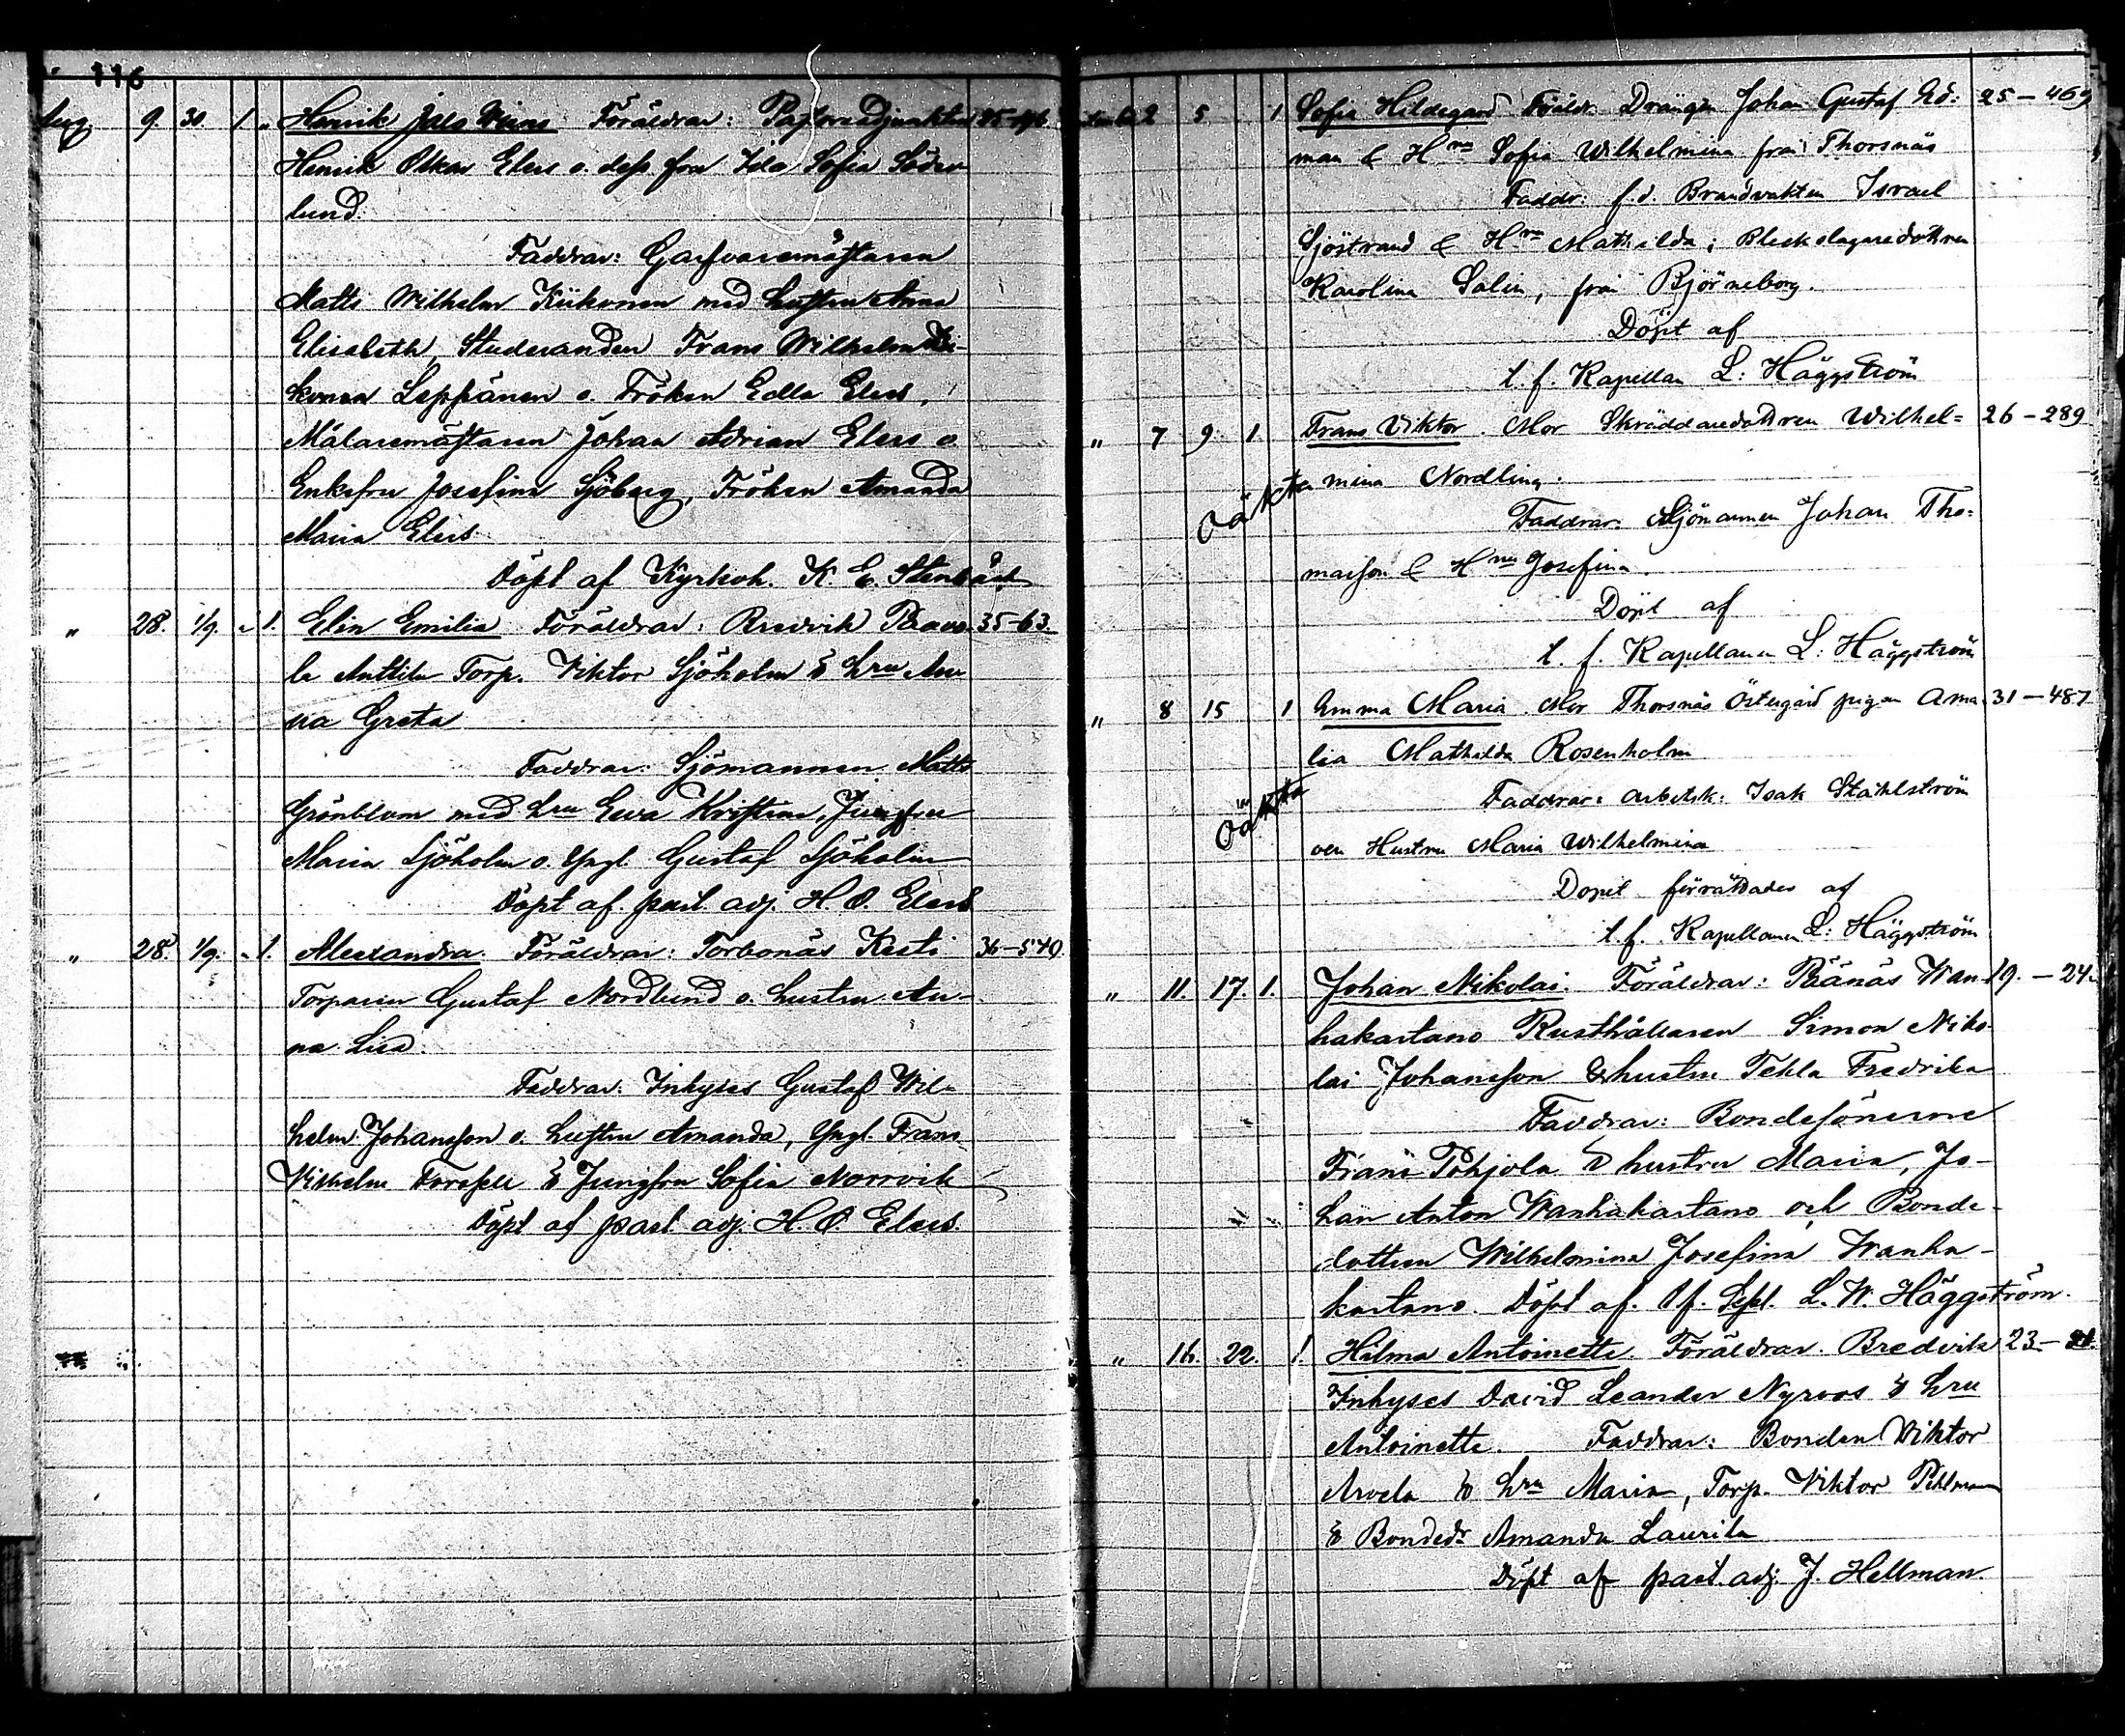 116
Aug 9. 30. 1. Henrik Föräldrar: Pastorsadjunkten
Henrik Oskar Elers o. dess fru Ida Sofia Söder
lund.
Faddrar: Garfvaremästaren
Matts Wilhelm Kiikonen med hustru Anna
Elisabeth, Studeranden Frans Wilhelm
Leppänen o. Fröken Edla Elers,
Målaremästaren Johan Adrian Elers o.
Enkefru Josefina Sjöberg, Fröken Amanda
Maria Elers.
Döpt af Kyrkoh. K. E. Stenbäck
" 28. 1/9. " 1. Elin Emilia Föräldrar: Bredvik Paavo 35-63.
la Anttila Torp. Viktor Sjöholm & hru An
na Greta
Faddrar: Sjömannen Matts
Grönblom med hru Eva Kristina, Jungfru
Maria Sjöholm o. Yngl. Gustaf Sjöholm
Döpt af past. adj. H. O. Elers
" 28. 1/9. " 1. Alexandra. Föräldrar: Torbonäs Kesti 36-540.
Torparen Gustaf Nordlund o. hustru An-
na Lisa.
Faddrar: Inhyses Gustaf Wil-
helm Johansson o. hustru Amanda, Yngl. Frans
Wilhelm & Jungfru Sofia Norrvik
Döpt af past. adj. H. O. Elers.
2 5 1 Sofia Hildegard Föräldr. Drängen Johan Gustaf Ed: 25-469
man & Hru Sofia Wilhelmina från Thorsnäs
Faddr: f.d. Brandvakten Israel
Sjöstrand & Hru Mathilda; Bleckslagaredottren
Karolina Salin, från Björneborg.
Döpt af
t. f. Kapellan L: Häggström
" 7 9 1. Frans Viktor. Mor Skräddaredottren Wilhel= 26-289
Oäkta mina Nordling.
Faddrar: Sjömannen Johan Tho=
masson & Hru Josefina.
Döpt af
t. f. Kapellanen L: Häggström
" 8 15 1 Emma Maria. Mor Thorsnäs Östergård pigan Ama 31-487
lia Mathilda Rosenholm
Oäkta
Faddrar: arbetsk: Isak Ståhlström
och Hustru Maria Wilhelmina
Dopet förrättades af
t. f. Kapellanen L: Häggström
" 11. 17. 1. Johan Nikolai. Föräldrar: Påänäs Wan- 19. - 24.
hakartano Rusthållaren Simon Niko
lai Johansson & hustru Tekla Fredrika
Faddrar: Bondesönerne
Frans Pohjola & hustru Maria, Jo-
han Anton Wanhakartano och Bonde-
dottren Wilhelmina Josefina Wanha-
kartano. Döpt af t.f. L. W. Häggström.
" 16. 22. 1. Hilma Antoinette. Föräldrar. Bredvik 23-
Inhyses David Leander Nyroos & hru
Antoinette. Faddrar: Bonden Viktor
Arvela & hru Maria, Torp. Viktor Pihlman
& Bondedr Amanda Laurila
Döpt af past. adj. J. Hellman